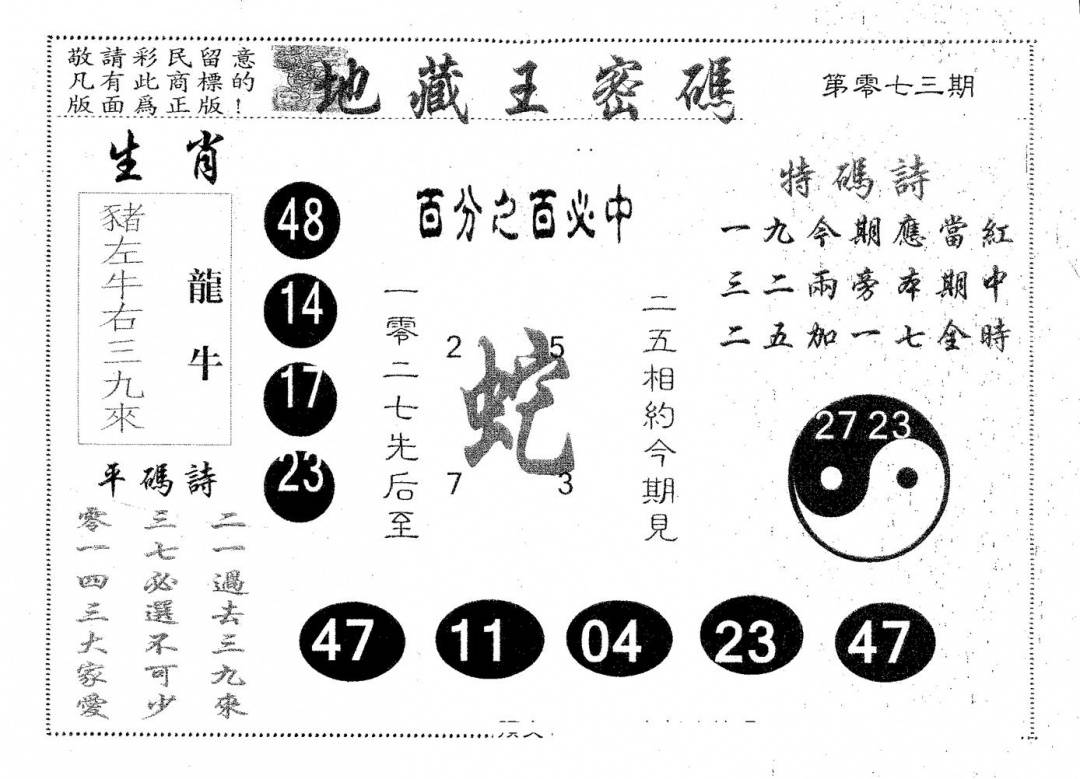 敬請彩民留意
凡有此商標的
版面為正版！
地藏王密碼
第零七三期
生肖
豬左牛右三九來
龍牛
48
14
17
23
百分之百必中
一零二七先后至
2 5
蛇
7 3
二五相約今期見
特碼詩
一九今期應當紅
三二兩旁本期中
二五加一七全時
27 23
平碼詩
二一過去三九來
三七必選不可少
零一四三大家愛
47 11 04 23 47